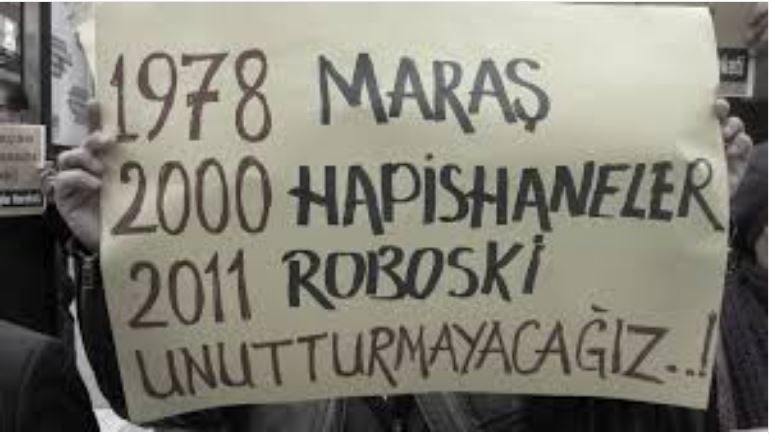 1978 MARAŞ
2000 HAPİSHANELER
2011 ROBOSKİ
UNUTTURMAYACAĞIZ..!